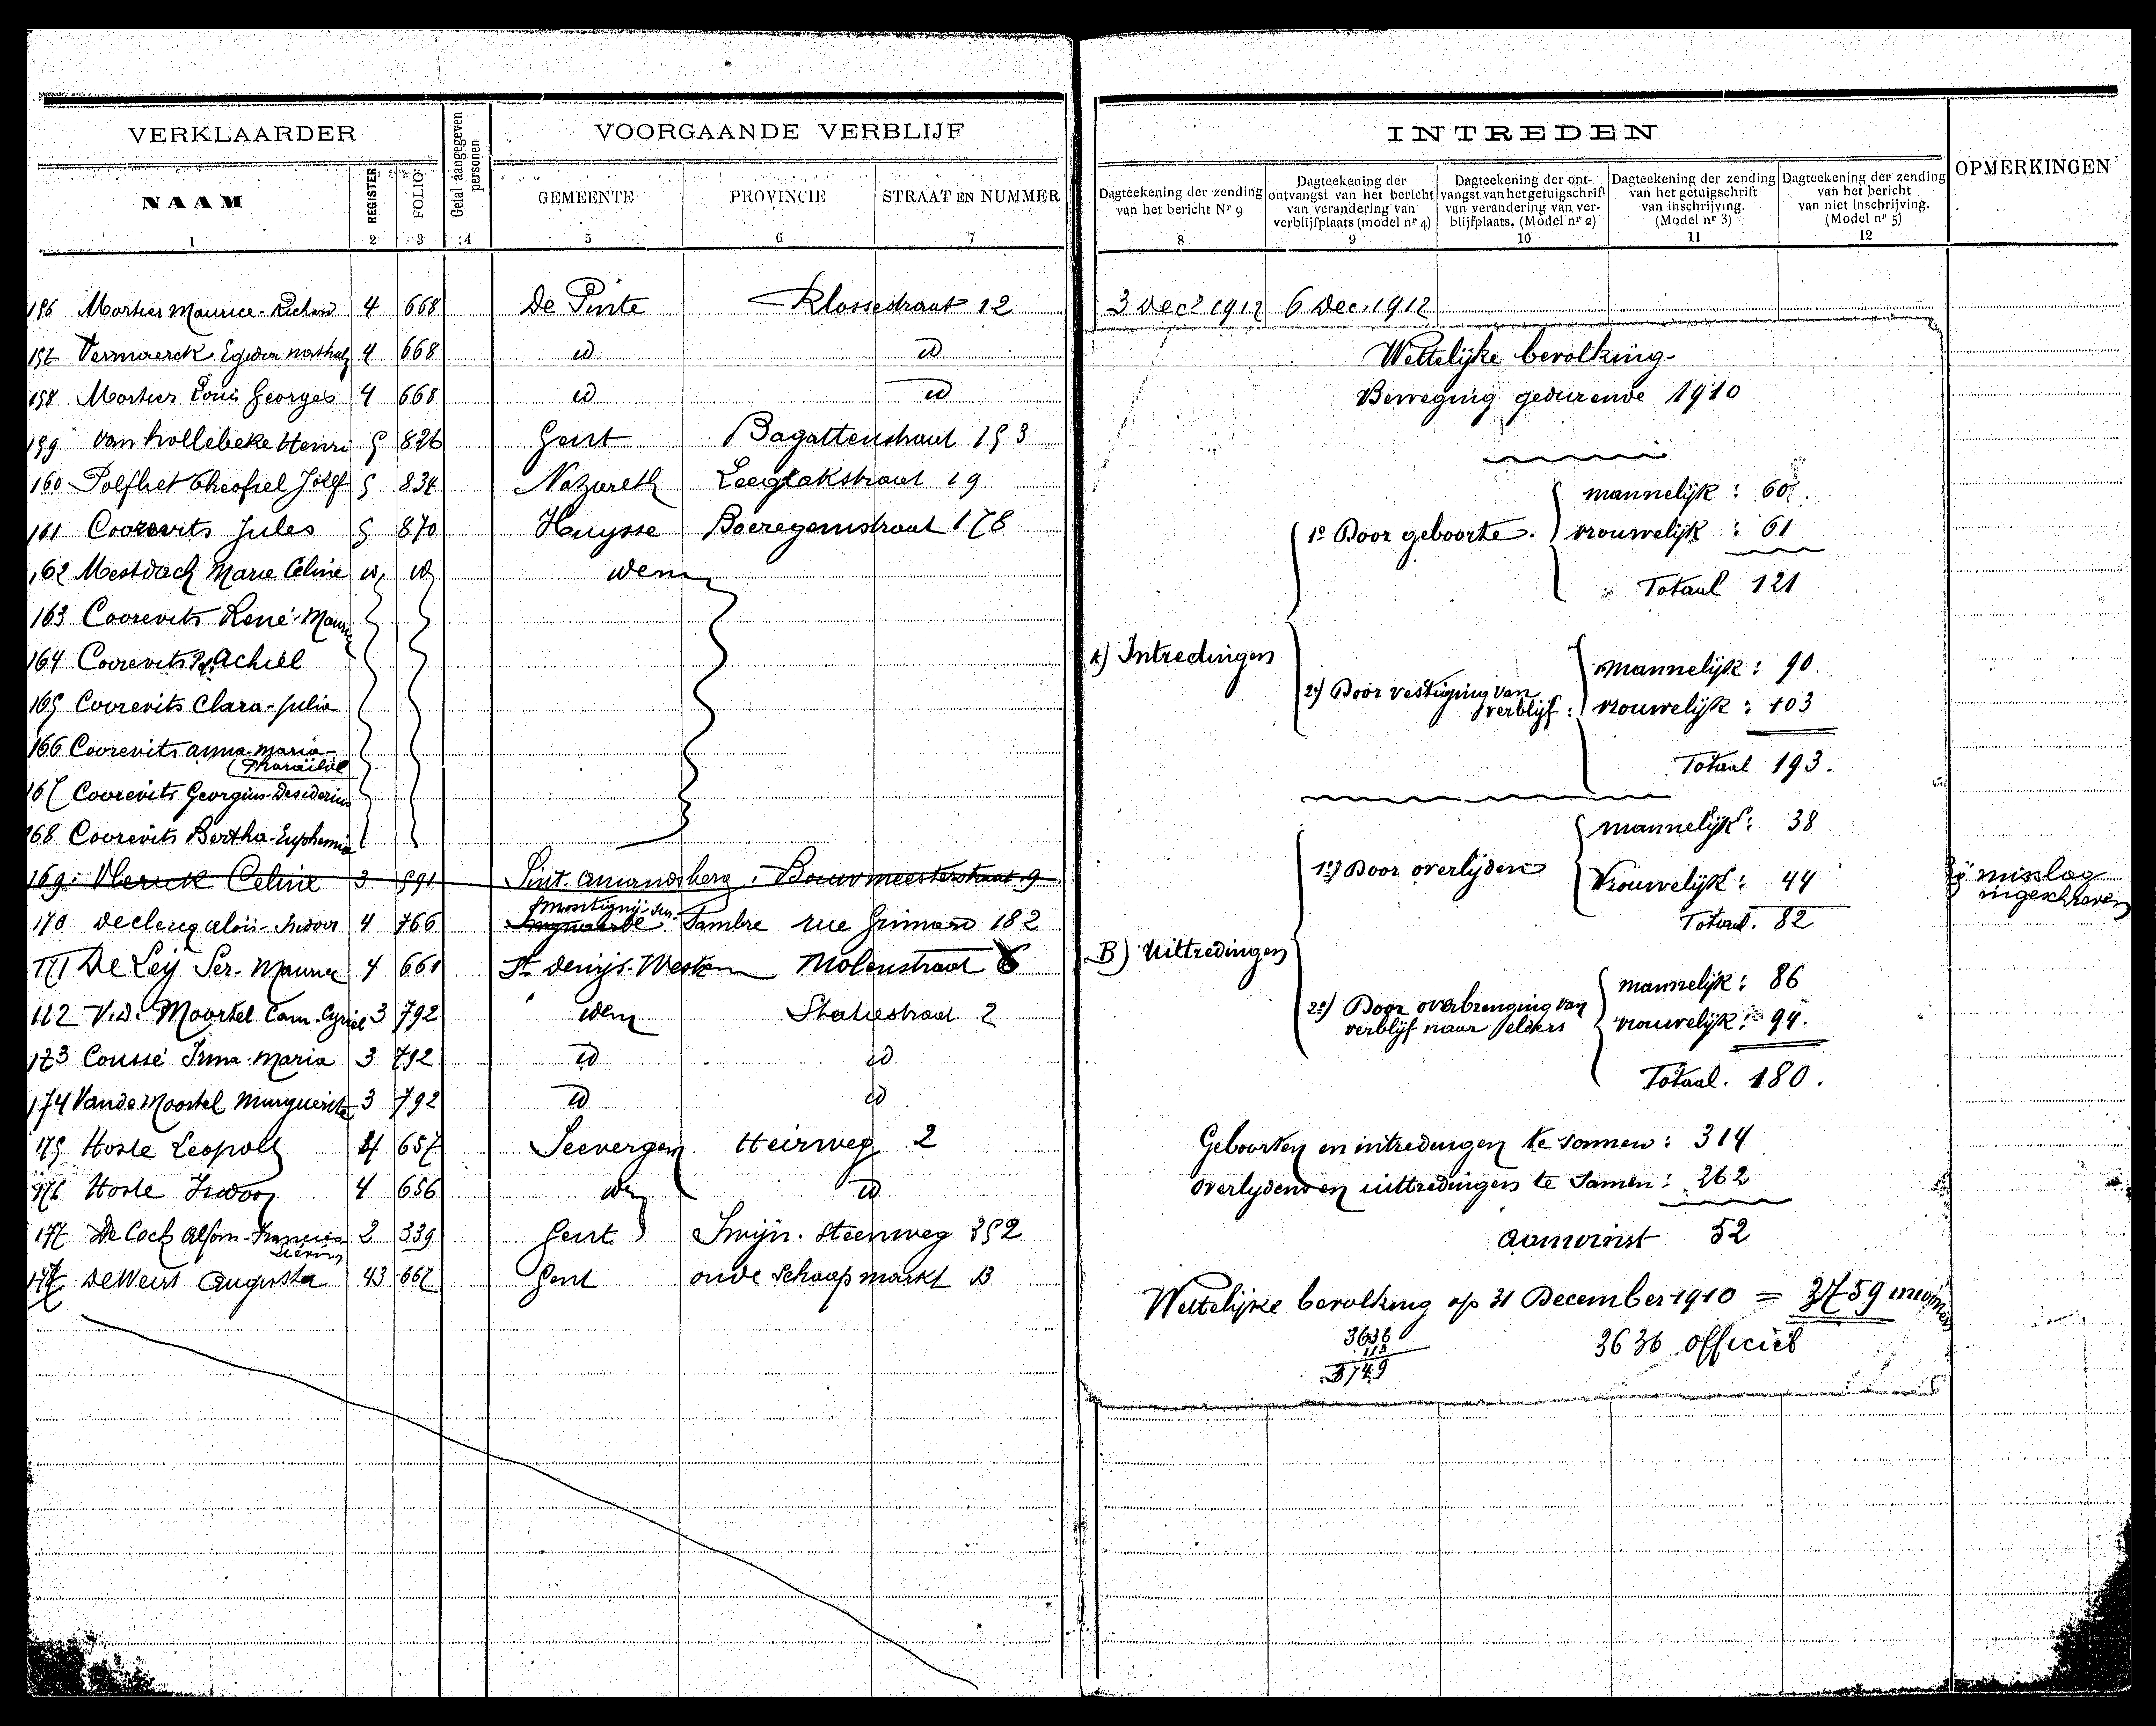 VERKLAARDER
Getal aangegeven personen
VOORGAANDE VERBLIJF
NAAM
REGISTER
FOLIO
GEMEENTE
PROVINCIE
STRAAT EN NUMMER
1 2 3 4 5 6 7
156 Mortier Maurice-Richard 4 668 De Pinte Klossestraat 12
157 Vermaerck 4 668 id id
158 Mortier Louis Georges 4 668 id id
159 Van hollebeke Henri 5 826 Gent Bagattenstraat 153
160 Polfliet Theofiel Jozef 5 834 Nazareth 19
161 Coorevits Jules 5 870 Huysse Boeregemstraat 178
162 Mestdach Marie Celine id id idem
163 Coorevits René-Maurice
164 Coorevits Achiel
165 Coorevits Clara-Julia
166 Coorevits Anna-Maria-
167 Coorevits Georgius-Desiderius
168 Coorevits Bertha-Euphemia
169 Vlerick Celine 3 591 Sint. Amandsberg. Bouwmeesterstraat 9
Montigny-sur-
170 Declercq Aloïs-Isidoor 4 766 Swynaerde Sambre rue Grimard 182
171 De Leÿ Ser-Maurice 4 661 St Denijs-Westrem Molenstraat 6
172 V.d. Moortel Cam. Cyriel 3 792 idem Statiestraat 2
173 Coussé Irma-Maria 3 792 id id
174 Vande Moortel Marguerite 3 792 id id
175 Hoste Leopold 4 657 Seevergem Heirweg 2
176 Hoste Isidoor 4 656 idem id
177 De Cock Alfons-Francies 2 339 Gent Swijn. Steenweg 352
Lievin
178 De Weirt Augusta 43 667 Gent oude Schaapmarkt 13
INTREDEN
OPMERKINGEN
Dagteekening der zending van het bericht Nr 9
Dagteekening der ontvangst van het bericht van verandering van verblijfplaats (model nr 4)
Dagteekening der ontvangst van het getuigschrift van verandering van verblijfplaats. (Model nr 2)
Dagteekening der zending van het getuigschrift van inschrijving. (Model nr 3)
Dagteekening der zending van het bericht van niet inschrijving. (Model nr 5)
8 9 10 11 12
3 Dec 1912 6 Dec. 1912
Wettelijke bevolking
Beweging gedurende 1910
mannelijk : 60.
1º Door geboorte. vrouwelijk : 61
Totaal 121
A) Intredingen
mannelijk : 90
2º) Door vestiging van verblijf : vrouwelijk : 103
Totaal 193.
mannelijk : 38
1º) Door overlijden
Vrouwelijk : 44
Totaal. 82
bij misslag
ingeschreven
B) Uittredingen
mannelijk : 86
2º) Door overbrenging van
verblijf naar elders vrouwelijk : 94.
Totaal. 180.
Geboorten en intredingen te samen : 314
Overlijdens en uittredingen te samen : 262
Aanwinst 52
Wettelijke bevolking op 31 December 1910 = 3759 inwoners
3636
113
3749
3636 officiëel